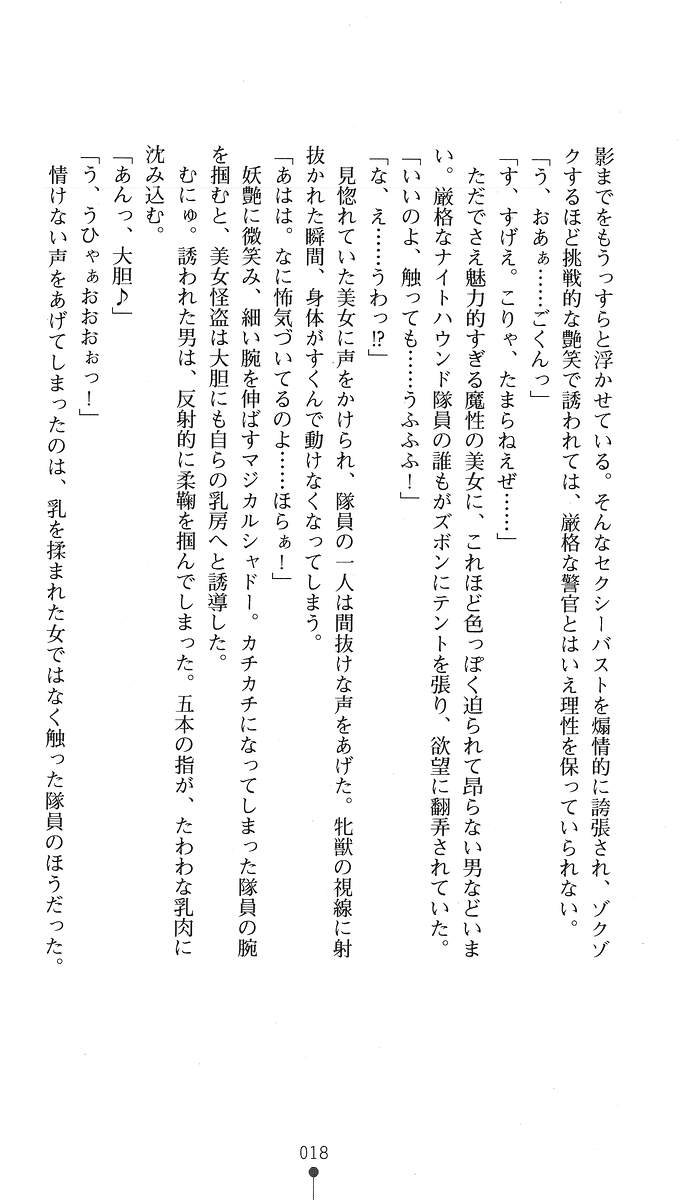 影までをもうっすらと浮かせている。そんなセクシーバストを煽情的に誇張され、ゾクゾ
クするほど挑戦的な艶笑で誘われては、厳格な警官とはいえ理性を保っていられない。
「う、おあぁ……ごくんっ」
「す、すげえ。こりゃ、たまらねえぜ……」
ただでさえ魅力的すぎる魔性の美女に、これほど色っぽく迫られて昂らない男などいま
い。厳格なナイトハウンド隊員の誰もがズボンにテントを張り、欲望に翻弄されていた。
「いいのよ、触っても……うふふふ！」
「な、え……うわっ!?」
見惚れていた美女に声をかけられ、隊員の一人は間抜けな声をあげた。牝獣の視線に射
抜かれた瞬間、身体がすくんで動けなくなってしまう。
「あはは。なに怖気づいてるのよ……ほらぁ！」
妖艶に微笑み、細い腕を伸ばすマジカルシャドー。カチカチになってしまった隊員の腕
を掴むと、美女怪盗は大胆にも自らの乳房へと誘導した。
むにゅ。誘われた男は、反射的に柔鞠を掴んでしまった。五本の指が、たわわな乳肉に
沈み込む。
「あんっ、大胆♪」
「う、うひゃぁおおおぉっ！」
情けない声をあげてしまったのは、乳を揉まれた女ではなく触った隊員のほうだった。
018